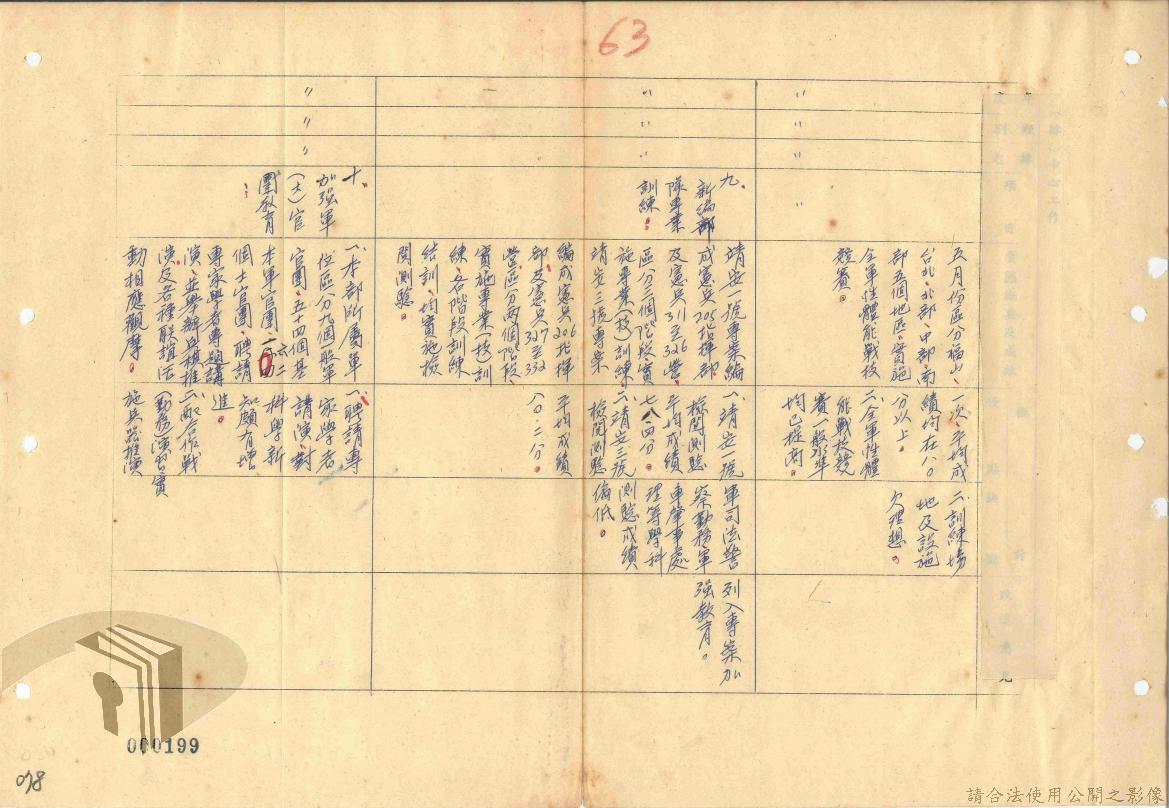 63
〃
〃
〃
〃
五月份區分福山、
台北、北部、中部、南
部五個地區、實施
全軍性體能戰技
競賽。
一次、平均成
績均在八○
分以上。
二、全軍性體
能戰技競
賽一般水準
均已提高
二、訓練場
地及設施
欠理想。
〃
〃
〃
九、
新編部
隊專業
訓練。
靖安一號專案編
成憲兵205指揮部
及憲兵311至326營、
區分三個階段、實
施專業(技)訓練
靖安三號專案
編成憲兵206指揮
部及憲兵317至332
營、區分兩個階段、
實施專業(技)訓
練、各階段訓練
結訓、均實施檢
閱測驗。
一、靖安一號
檢閱測驗
平均成績
七八.四分。
二、靖安三號
檢閱測驗
平均成績
八○.二分。
軍司法警
察勤務、軍
車肇事處
理等學科
測驗成績
偏低。
列入專案加
強教育。
〃
〃
〃
十、
加強軍
(士)官
團教育
一、本部所屬軍
任區分九個一般軍
官團、五十四個基
本軍官團、一六二
個士官團、聘請
專家學者專題講
演、並舉辦兵棋推
演及各種聯誼活
動相應觀摩。
一、聘請專
家學者
講演對
科學新
知頗有增
進。
二、配合作戰
(勤務)演習實
施兵棋推演
000199
078
請合法使用公開之影像